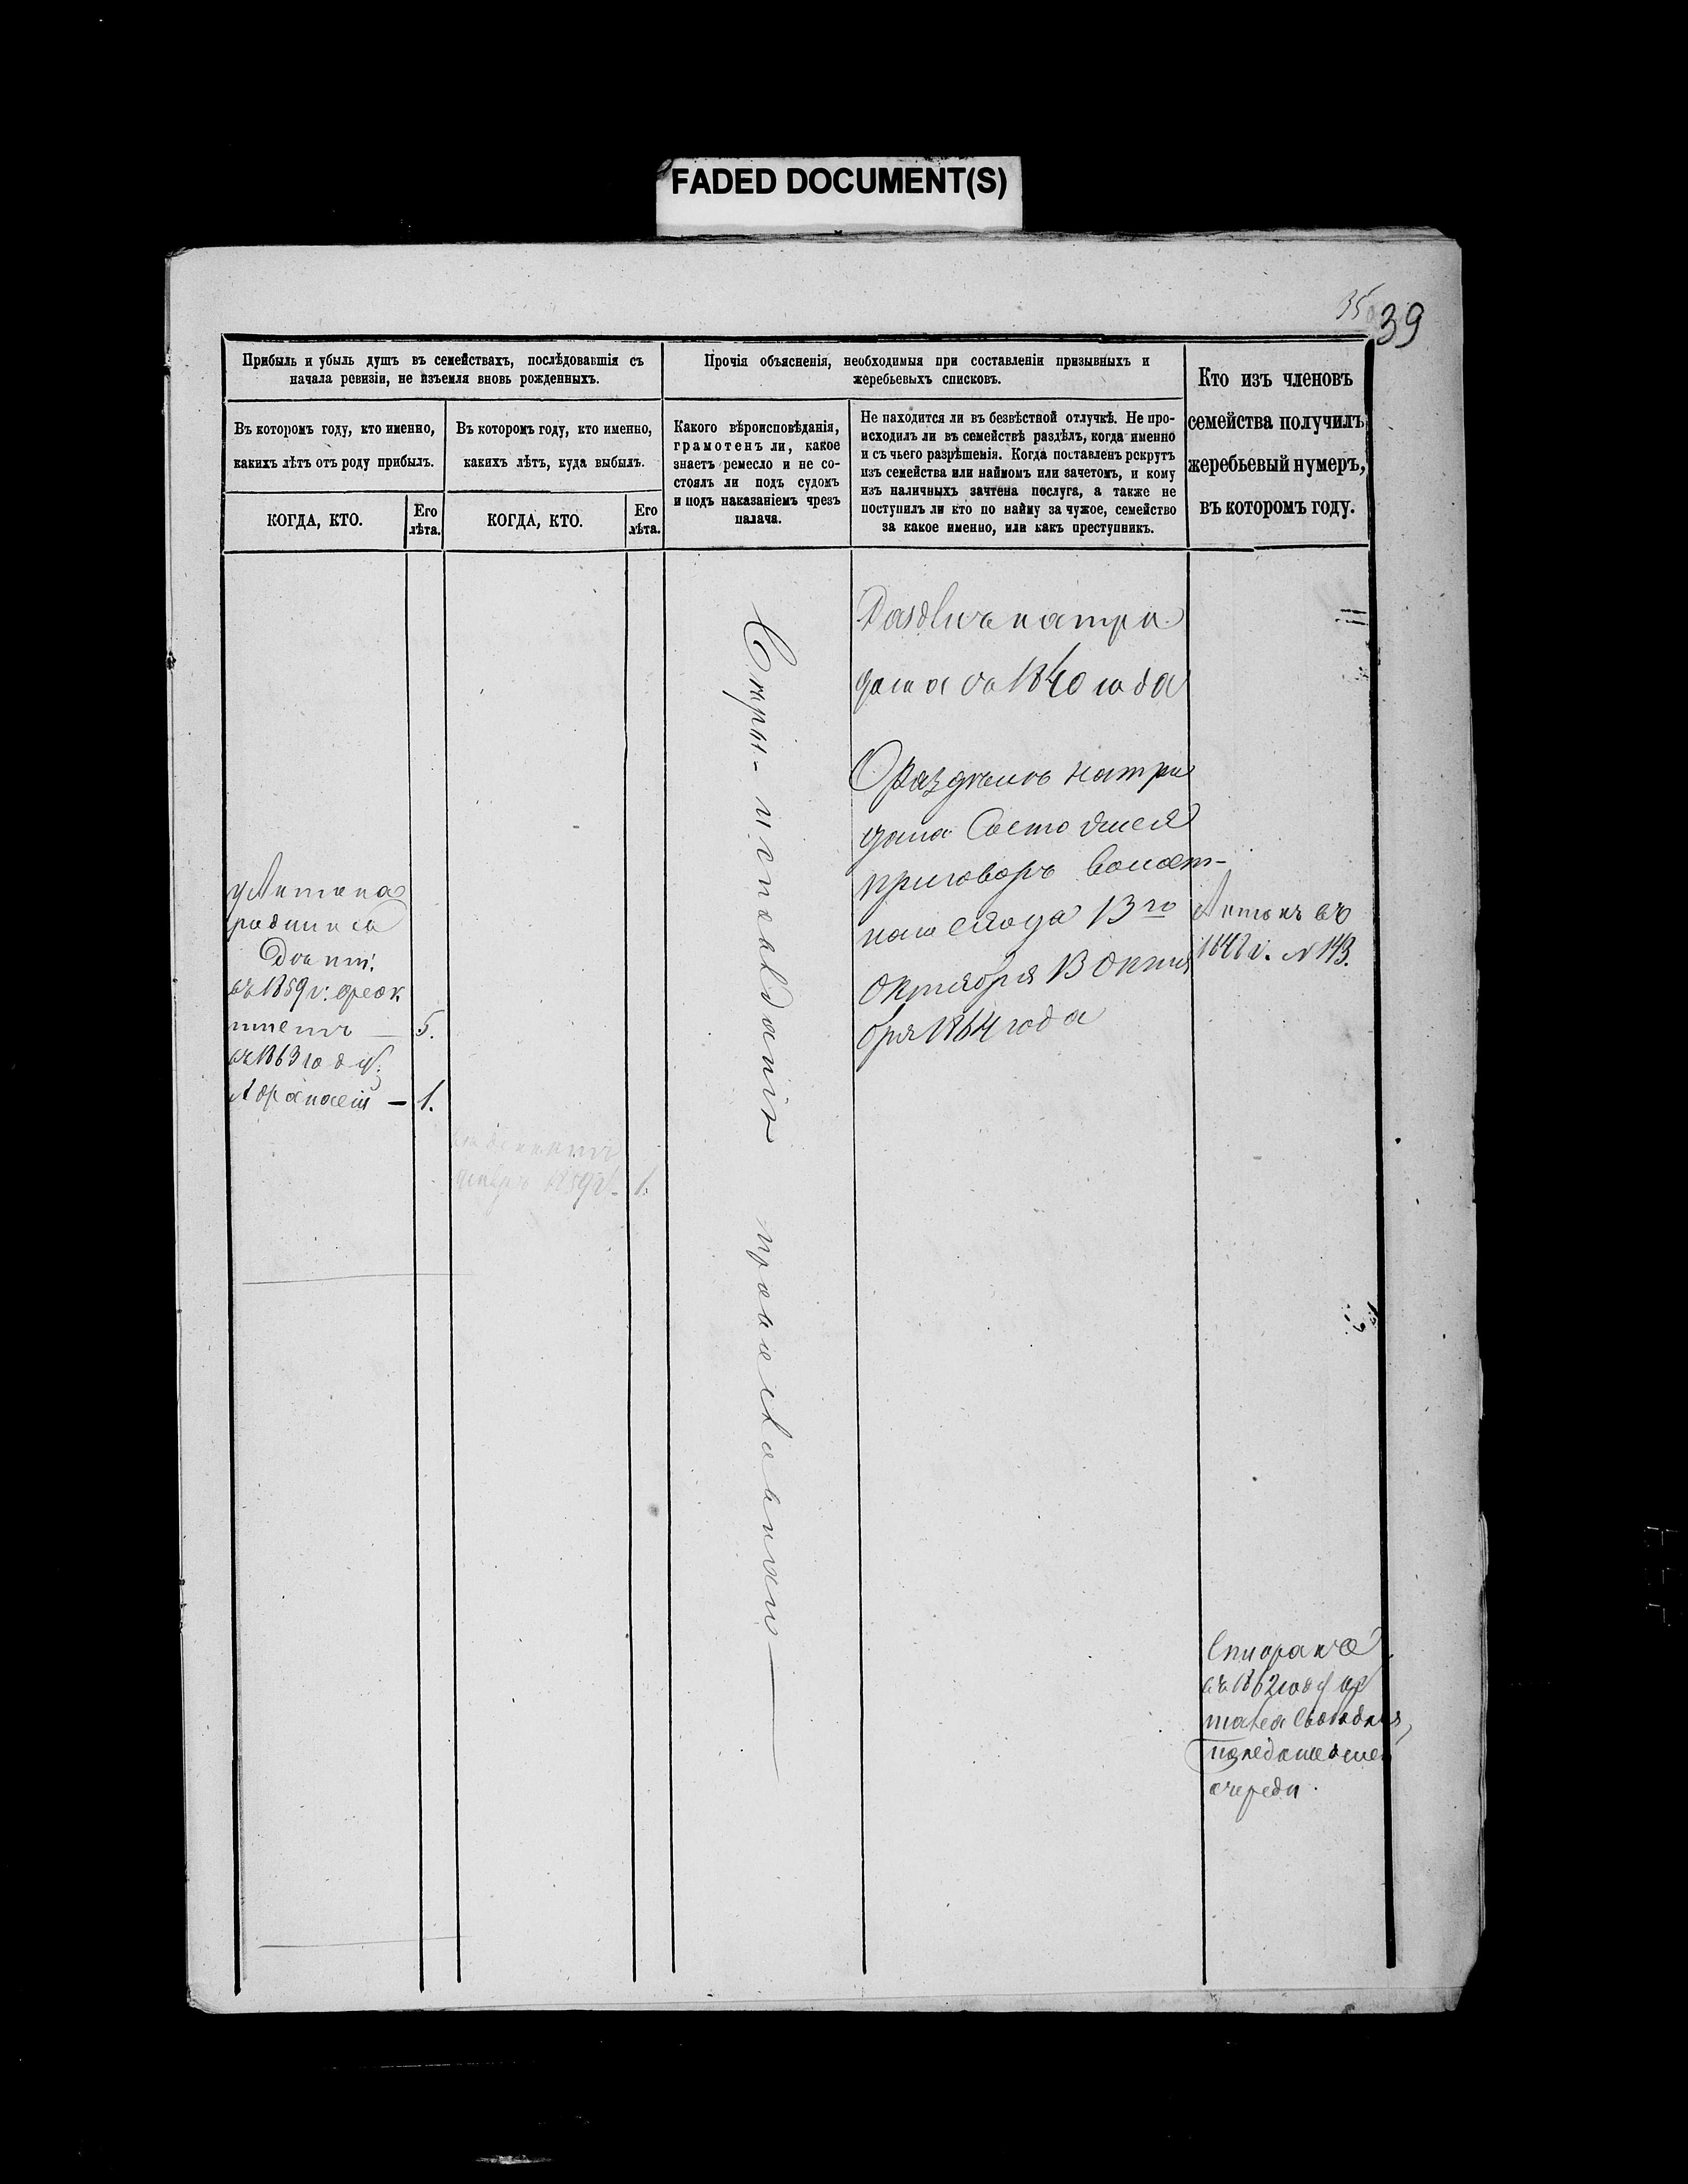 FADED DOCUMENT(S)
35
39
Прибыль и убыль душъ въ семействахъ, послѣдовавшія съ
начала ревизіи, не изъемля вновь рожденныхъ.
Въ которомъ году, кто именно,
какихъ лѣтъ отъ роду прибылъ.
КОГДА, КТО.
Его
лѣта.
Въ которомъ году, кто именно,
какихъ лѣтъ, куда выбылъ.
КОГДА, КТО.
Его
лѣта.
Прочія объясненія, необходимыя при составленіи призывныхъ и
жеребьевыхъ списковъ.
Какого вѣроисповѣданія,
грамотенъ ли, какое
знаетъ ремесло и не со-
стоялъ ли подъ судомъ
и подъ наказаніемъ чрезъ
палача.
Не находится ли въ безвѣстной отлучкѣ. Не про-
исходилъ ли въ семействѣ раздѣлъ, когда именно
и съ чьего разрѣшенія. Когда поставленъ рекрутъ
изъ семейства или наймомъ или зачетомъ, и кому
изъ наличныхъ зачтена послуга, а также не
поступилъ ли кто по найму за чужое, семейство
за какое именно, или какъ преступникъ.
Кто изъ членовъ
семейства получилъ
жеребьевый нумеръ,
въ которомъ году.
у Антона
родился
въ 1859 г.
5.
въ 1863 году
1.
1859 г. 1.
православнаго
на три
дома съ 1840 года
О раздѣлѣ на три
дома Состоялся
приговоръ Волост-
наго схода 13го
Октября 13 Октя
бря 1864 года
Антонъ въ
184 г. № 143.
въ 1862 году
очереди.